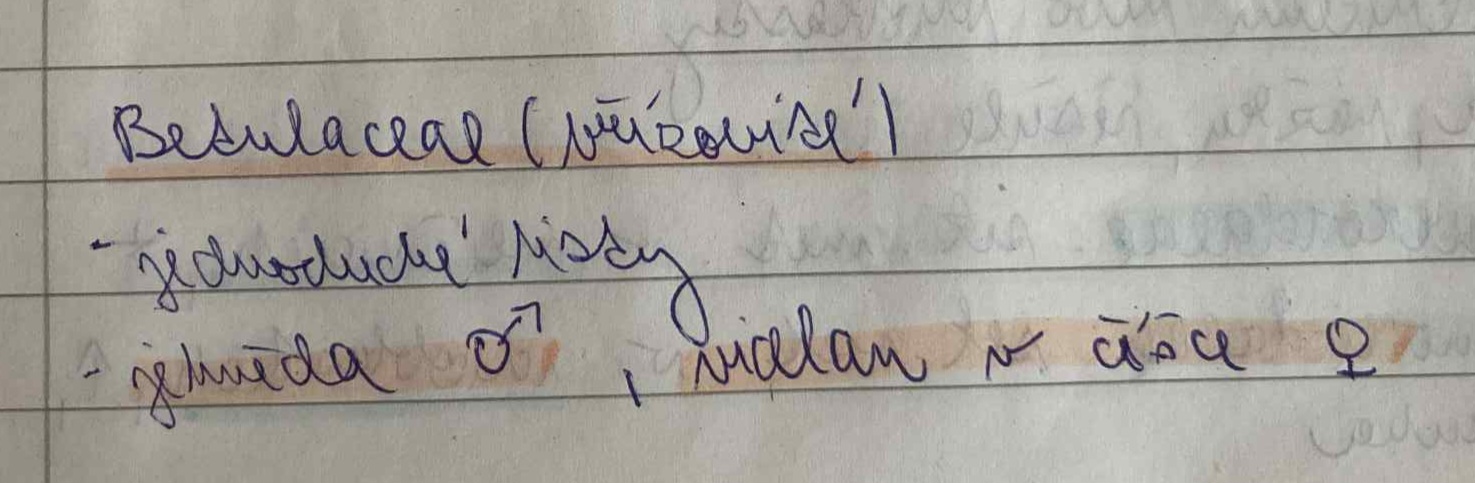 Betulaceae (břízovité)
- jednoduché listy
- jehněda ♂, vidlan v číšce ♀